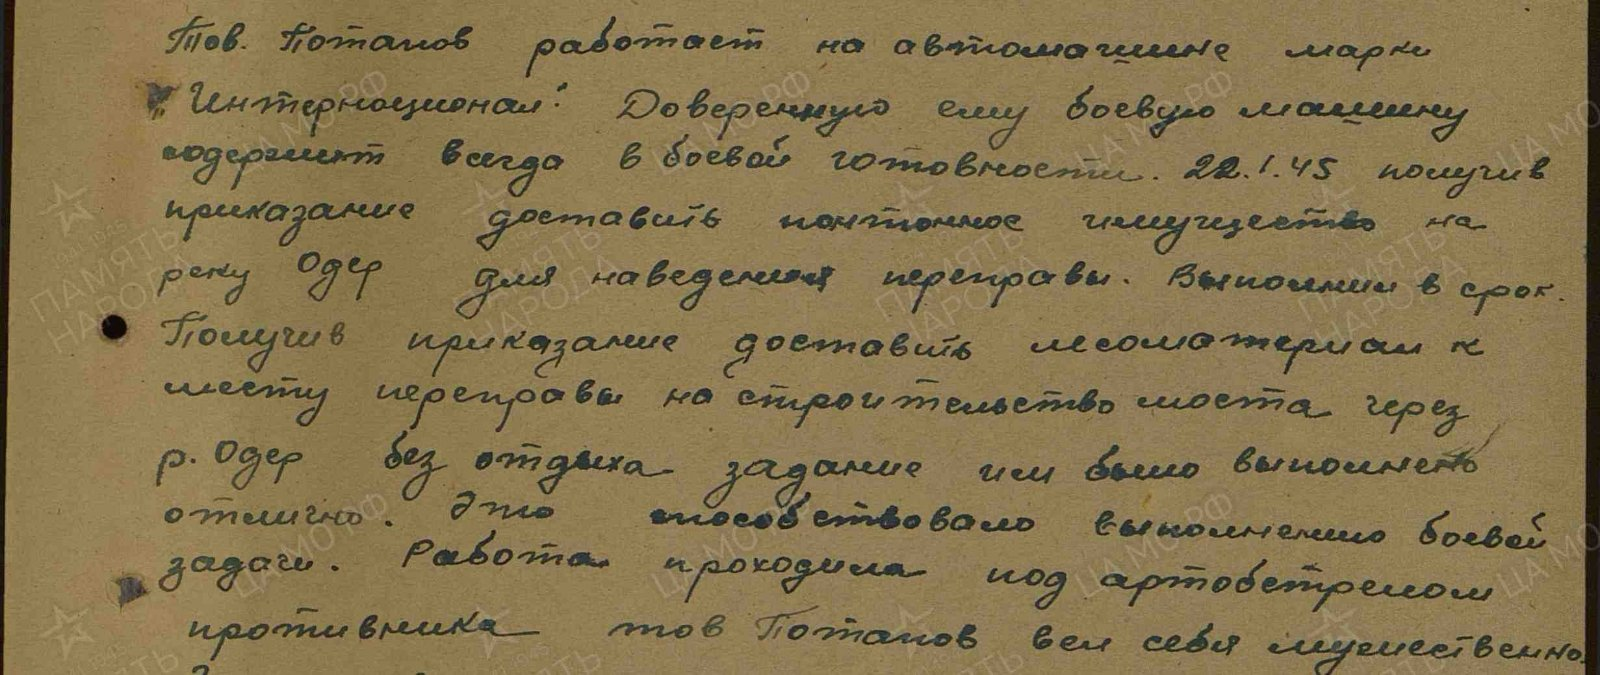 Тов. Потапов работает на автомашине марки
"Интернационал". Доверенную ему боевую машину
содержит всегда в боевой готовности. 22.1.45 получив
приказание доставить понтонное имущество на
реку Одер для наведения переправы. Выполнил в срок.
Получив приказание доставить лесоматериал к
месту переправы на строительство моста через
р. Одер без отдыха задание им было выполнено
отлично. Это способствовало выполнению боевой
задачи. Работа проходила под артобстрелом
противника тов Потапов вел себя мужественно.
ПАМЯТЬ НАРОДА
ЦА МО РФ